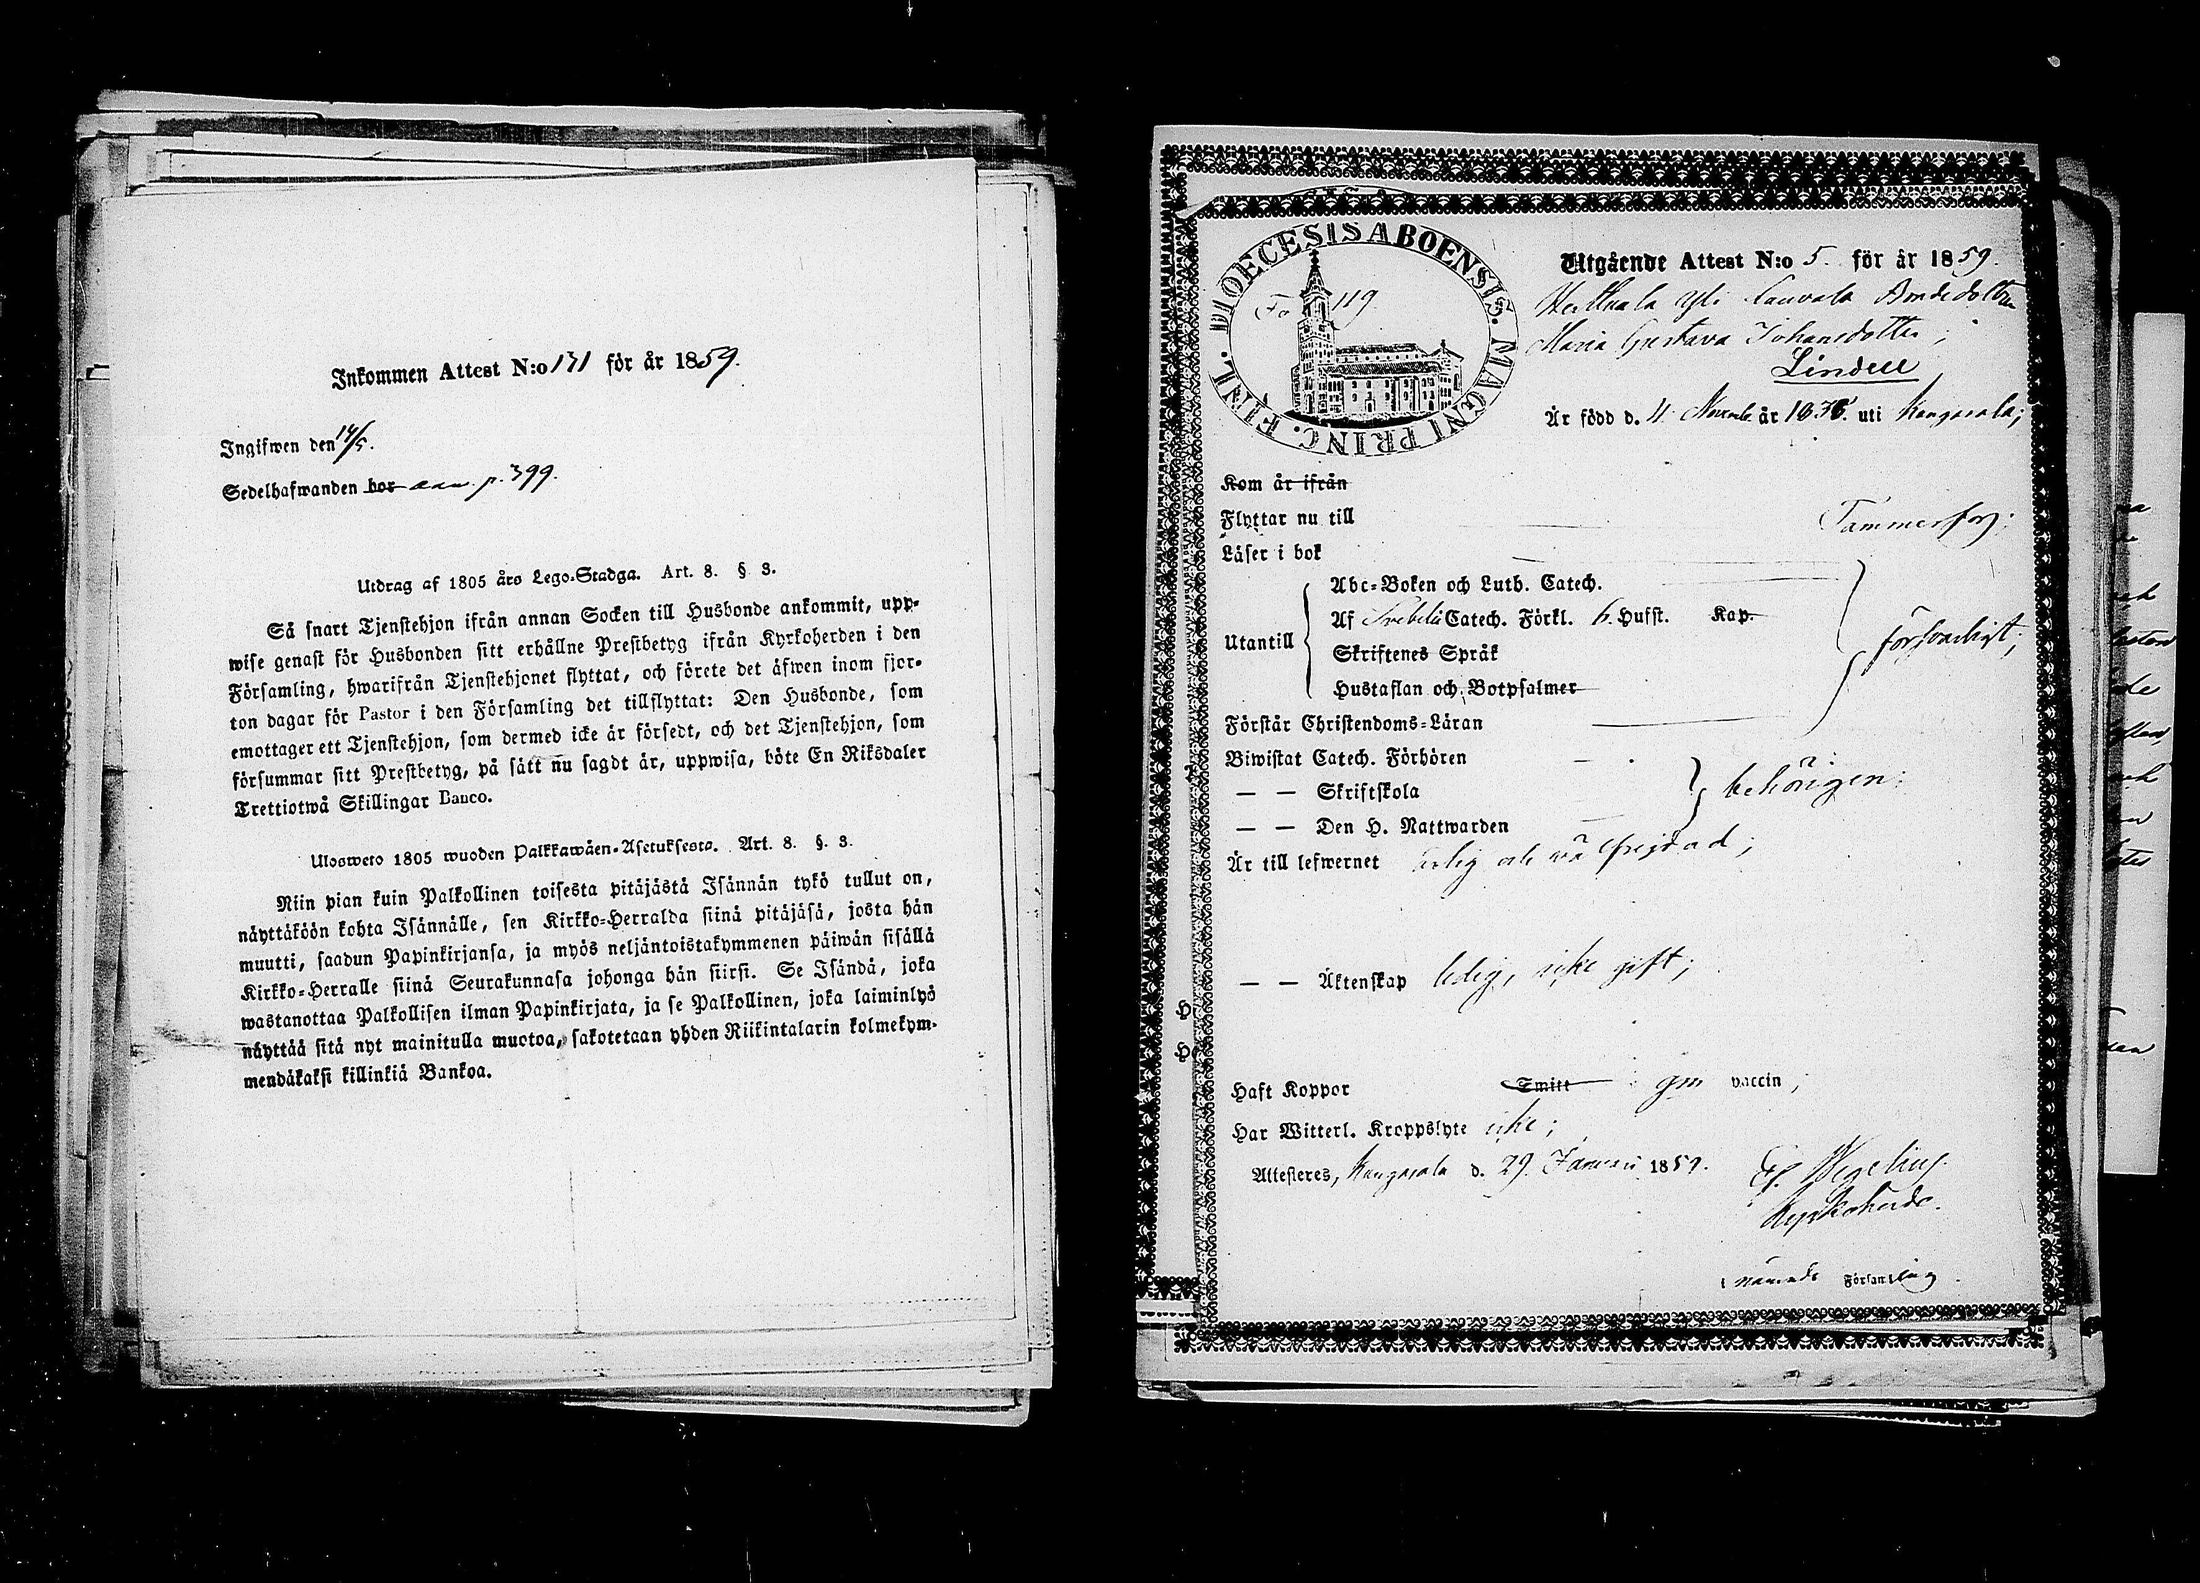 Inkommen Attest N:o 131 för år 1859.
Ingifwen den 14/5.
Sedelhafwanden bor p. 399.
Utdrag af 1805 års Lego-Stadga. Art. 8. § 3.
Så snart Tjenstehjon ifrån annan Socken till Husbonde ankommit, upp-
wise genast för Husbonden sitt erhållne Prestbetyg ifrån Kyrkoherden i den
Församling, hwarifrån Tjenstehjonet flyttat, och förete det äfwen inom fjor-
ton dagar för Pastor i den Församling det tillflyttat: Den Husbonde, som
emottager ett Tjenstehjon, som dermed icke är försedt, och det Tjenstehjon, som
försummar sitt Prestbetyg, på sätt nu sagdt är, uppwisa, böte En Riksdaler
Trettiotwå Skillingar Banco.
Ulosweto 1805 wuoden Palkkawäen-Asetuksesta. Art. 8. §. 3.
Niin pian kuin Palkollinen toisesta pitäjästä Isännän tykö tullut on,
näyttäköön kohta Isännälle, sen Kirkko-Herralda siinä pitäjäsä, josta hän
muutti, saadun Papinkirjansa, ja myös neljäntoistakymmenen päiwän sisällä
Kirkko-Herralle siinä Seurakunnasa johonga hän siirsi. Se Isändä, joka
wastanottaa Palkollisen ilman Papinkirjata, ja se Palkollinen, joka laiminlyö
näyttää sitä nyt mainitulla muotoa, sakotetaan yhden Riikintalarin kolmekym-
mendäkaksi killinkiä Bankoa.
DIOECESIS ABOENSIS. MAGNI PRINC. FINL.
Fo 119.
Utgående Attest N:o 5. för år 1859.
Yli
Maria Gustava Johansdotter,
Lindell
Är född d. 4 år 183 uti Kangasala;
Kom år ifrån
Flyttar nu till Tammerfors;
Läser i bok
Abc-Boken och Luth. Catech.
Utantill
Af Svebelii Catech. Förkl. 6. Hufst. Kap.
Skriftenes Språk
försvarligt;
Hustaflan och Botpsalmer
Förstår Christendoms-Läran
Biwistat Catech. Förhören
— — Skriftskola
behörigen;
— — Den H. Nattwarden
Är till lefwernet ärlig och wä frejdad;
— — Äktenskap ledig, icke gift;
Haft Koppor Smitt gm vaccin;
Har Witterl. Kroppslyte icke;
Attesteres, Kangasala d. 29. Januari 1859.
Wegelius.
Kyrkoherde.
i nämnde Församling.